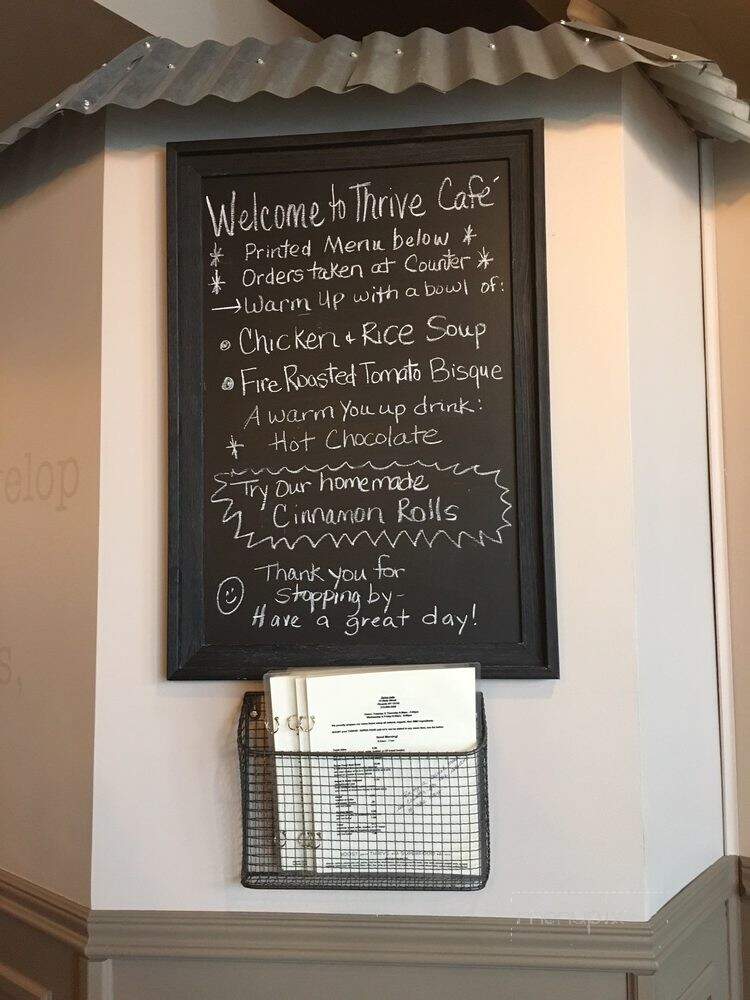 Welcome to Thrive Café
* Printed Menu below *
* Orders taken at Counter *
→ Warm Up with a bowl of:
• Chicken & Rice Soup
• Fire Roasted Tomato Bisque
A warm You up drink:
* Hot Chocolate
Try Our homemade
Cinnamon Rolls
Thank you for
☺ Stopping by-
Have a great day!
elop
s,